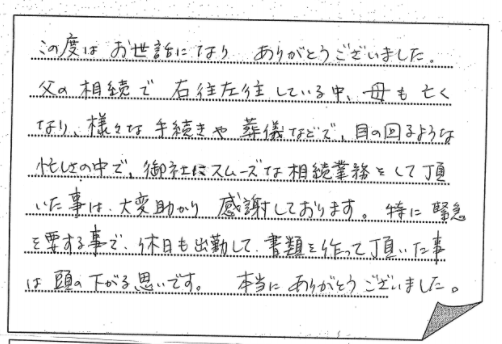 この度は お世話になり ありがとうございました。
父の相続で 右往左往している中、母も亡く
なり、様々な手続きや 葬儀などで、目の回るような
忙しさの中で、御社にスムーズな相続業務をして頂
いた事は、大変助かり 感謝しております。特に 緊急
を要する事で、休日も出勤して、書類を作って頂いた事
は 頭の下がる思いです。 本当に ありがとうございました。